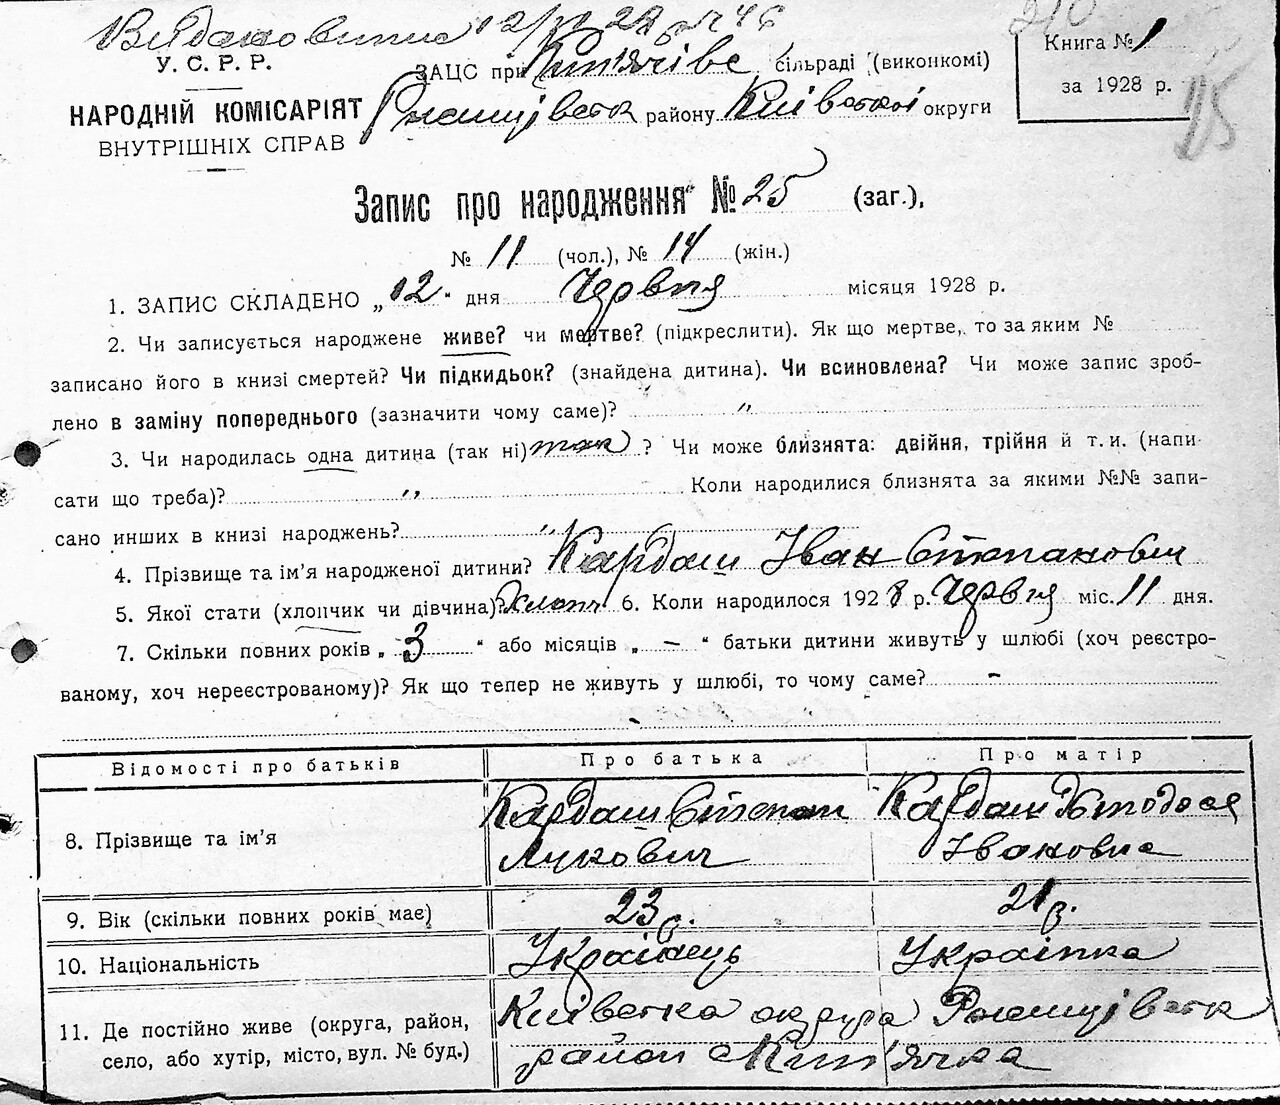 У. С. Р. Р.
НАРОДНІЙ КОМІСАРІЯТ
ВНУТРІШНІХ СПРАВ
ЗАЦС при сільраді (виконкомі)
району Київської округи
Книга № 1
за 1928 р.
Запис про народження № 25 (заг.),
№ 11 (чол.), № 14 (жін.)
1. ЗАПИС СКЛАДЕНО „12" дня Червня місяця 1928 р.
2. Чи записується народжене живе? чи мертве? (підкреслити). Як що мертве, то за яким №
записано його в книзі смертей? Чи підкидьок? (знайдена дитина). Чи всиновлена? Чи може запис зроб-
лено в заміну попереднього (зазначити чому саме)? "
3. Чи народилась одна дитина (так ні) так ? Чи може близнята: двійня, трійня й т. и. (напи-
сати що треба)? " Коли народилися близнята за якими №№ запи-
сано инших в книзі народжень? "
4. Прізвище та ім'я народженої дитини? Кардаш Іван Степанович
5. Якої стати (хлопчик чи дівчина)? хлопч 6. Коли народилося 1928 р. Червня міс. 11 дня.
7. Скільки повних років „ 3 " або місяців „ — " батьки дитини живуть у шлюбі (хоч реєстро-
ваному, хоч нереєстрованому)? Як що тепер не живуть у шлюбі, то чому саме? -
Відомості про батьків Про батька Про матір
8. Прізвище та ім'я Кардаш Степан Лукович Кардаш Івановна
9. Вік (скільки повних років має) 23 р. 21 р.
10. Національність Українець Українка
11. Де постійно живе (округа, район,
село, або хутір, місто, вул. № буд.)
Київська округа
район